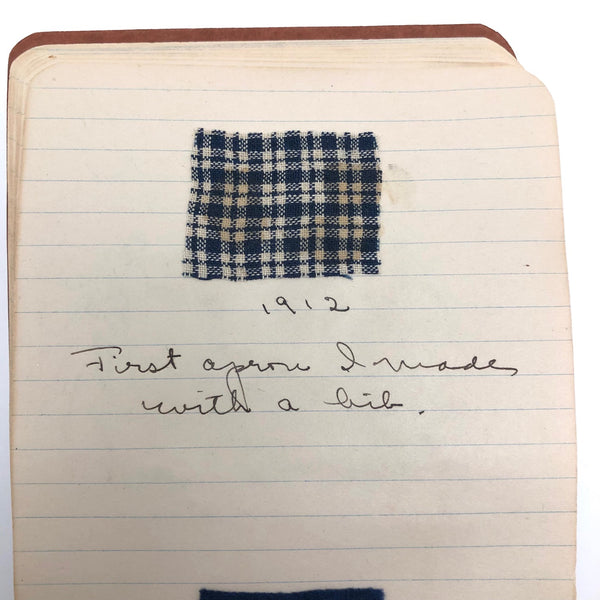 1912
First apron I made,
with a bib.